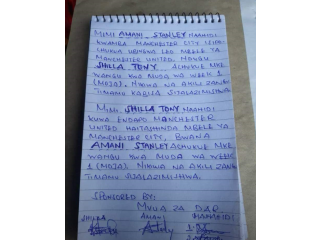 MIMI AMANI. STANLEY NAAHIDI
KWAMBA MANCHESTER CITY
CHUKUA UBINGWA LEO MBELE YA
MANCHESTER UNITED. NDUGU
SHILLA TONY ACHUKUE MKE
WANGU KWA MUDA WA WEEK 1
(MOJA). NIKIWA NA AKILI ZANGU
TIMAMU KABISA SIJALAZIMISHWA.
MIMI. SHILLA TONY NAAHIDI
KUWA ENDAPO MANCHESTER
UNITED HAITASHINDA MBELE YA
MANCHESTER CITY, BWANA
AMANI STANLEY ACHUKUE MKE
WANGU KWA MUDA WA WEEK
1 (MOJA). NIKIWA NA AKILI ZANGU
TIMAMU SIJALAZIMISHWA.
SPONSORED BY:
SHILLA AMANI